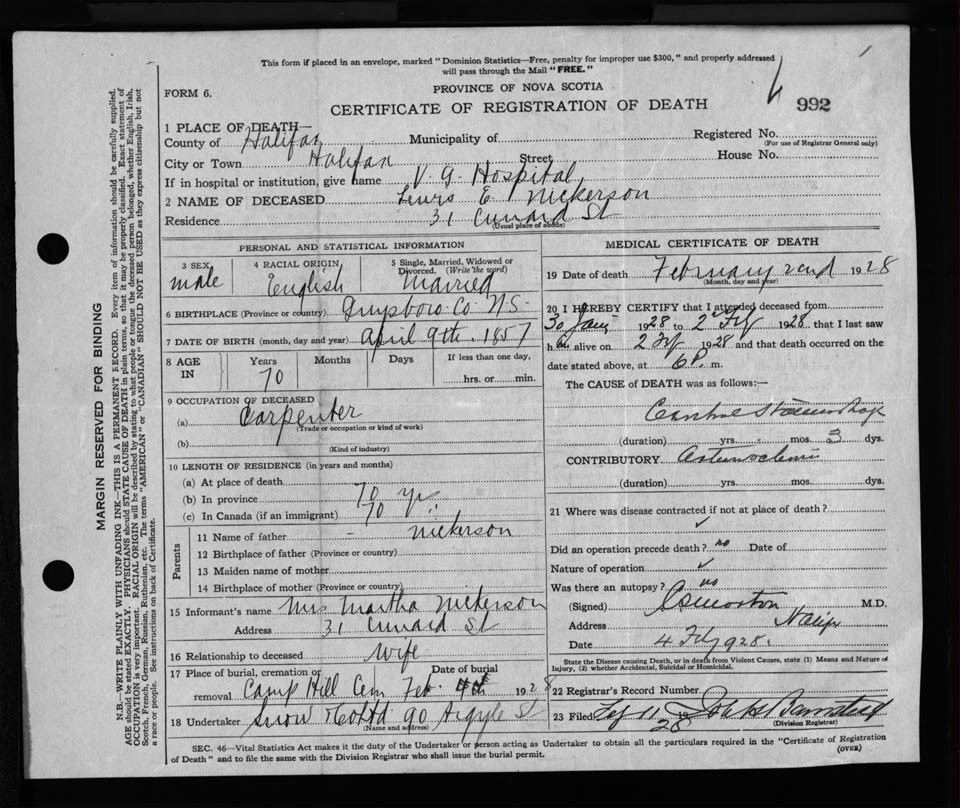 This form if placed in an envelope, marked " Dominion Statistics—Free, penalty for improper use $300," and properly addressed
will pass through the Mail "FREE."
FORM 6.
PROVINCE OF NOVA SCOTIA
CERTIFICATE OF REGISTRATION OF DEATH
992
1 PLACE OF DEATH—
County of Halifax Municipality of Registered No.
(For use of Registrar General only)
City or Town Halifax Street House No.
If in hospital or institution, give name V. G. Hospital,
2 NAME OF DECEASED Lewis E. Nickerson
Residence 31 Cunard St
(Usual place of abode)
PERSONAL AND STATISTICAL INFORMATION
3 SEX 4 RACIAL ORIGIN 5 Single, Married, Widowed or
Divorced. (Write the word)
male English Married
6 BIRTHPLACE (Province or country) Guysboro Co N.S.
7 DATE OF BIRTH (month, day and year) April 9th. 1857
8 AGE IN Years Months Days If less than one day,
70 hrs. or min.
9 OCCUPATION OF DECEASED
(a) Carpenter
(Trade or occupation or kind of work)
(b)
(Kind of industry)
10 LENGTH OF RESIDENCE (in years and months)
(a) At place of death
(b) In province 70 yrs.
(c) In Canada (if an immigrant) 70 "
Parents
11 Name of father - Nickerson
12 Birthplace of father (Province or country)
13 Maiden name of mother
14 Birthplace of mother (Province or country)
15 Informant's name Mrs Martha Nickerson
Address 31 Cunard St
16 Relationship to deceased wife
17 Place of burial, cremation or Date of burial
removal Camp Hill Cem Feb. 4th 1928
18 Undertaker Snow & Co Ltd 90 Argyle St
(Name and address)
MEDICAL CERTIFICATE OF DEATH
19 Date of death February 2nd 1928
(Month, day and year)
20 I HEREBY CERTIFY that I attended deceased from
30 Jany 1928 to 2 Feby 1928 that I last saw
h im alive on 2 Feby 1928 and that death occurred on the
date stated above, at 6 P. m.
The CAUSE of DEATH was as follows:—
(duration) yrs. mos. 3 dys.
CONTRIBUTORY
(duration) yrs. mos. dys.
21 Where was disease contracted if not at place of death?
✓
Did an operation precede death? no Date of
Nature of operation ✓
Was there an autopsy? no
(Signed) M.D.
Address Halifx
Date 4 Feby 928.
State the Disease causing Death, or in death from Violent Causes, state (1) Means and Nature of
Injury, (2) whether Accidental, Suicidal or Homicidal.
22 Registrar's Record Number
23 Filed Feb 11 1928
(Division Registrar)
SEC. 46—Vital Statistics Act makes it the duty of the Undertaker or person acting as Undertaker to obtain all the particulars required in the "Certificate of Registration
of Death" and to file the same with the Division Registrar who shall issue the burial permit.
(OVER)
MARGIN RESERVED FOR BINDING
N.B.—WRITE PLAINLY WITH UNFADING INK—THIS IS A PERMANENT RECORD. Every item of information should be carefully supplied.
AGE should be stated EXACTLY. PHYSICIANS should STATE CAUSE OF DEATH in plain terms, so that it may be properly classified. Exact statement of
OCCUPATION is very important. RACIAL ORIGIN will be described by stating to what people or tongue the deceased person belonged, whether English, Irish,
Scotch, French, German, Russian, Ruthenian, etc. The terms "AMERICAN" or "CANADIAN" SHOULD NOT BE USED as they express citizenship but not
a race or people. See instructions on back of Certificate.